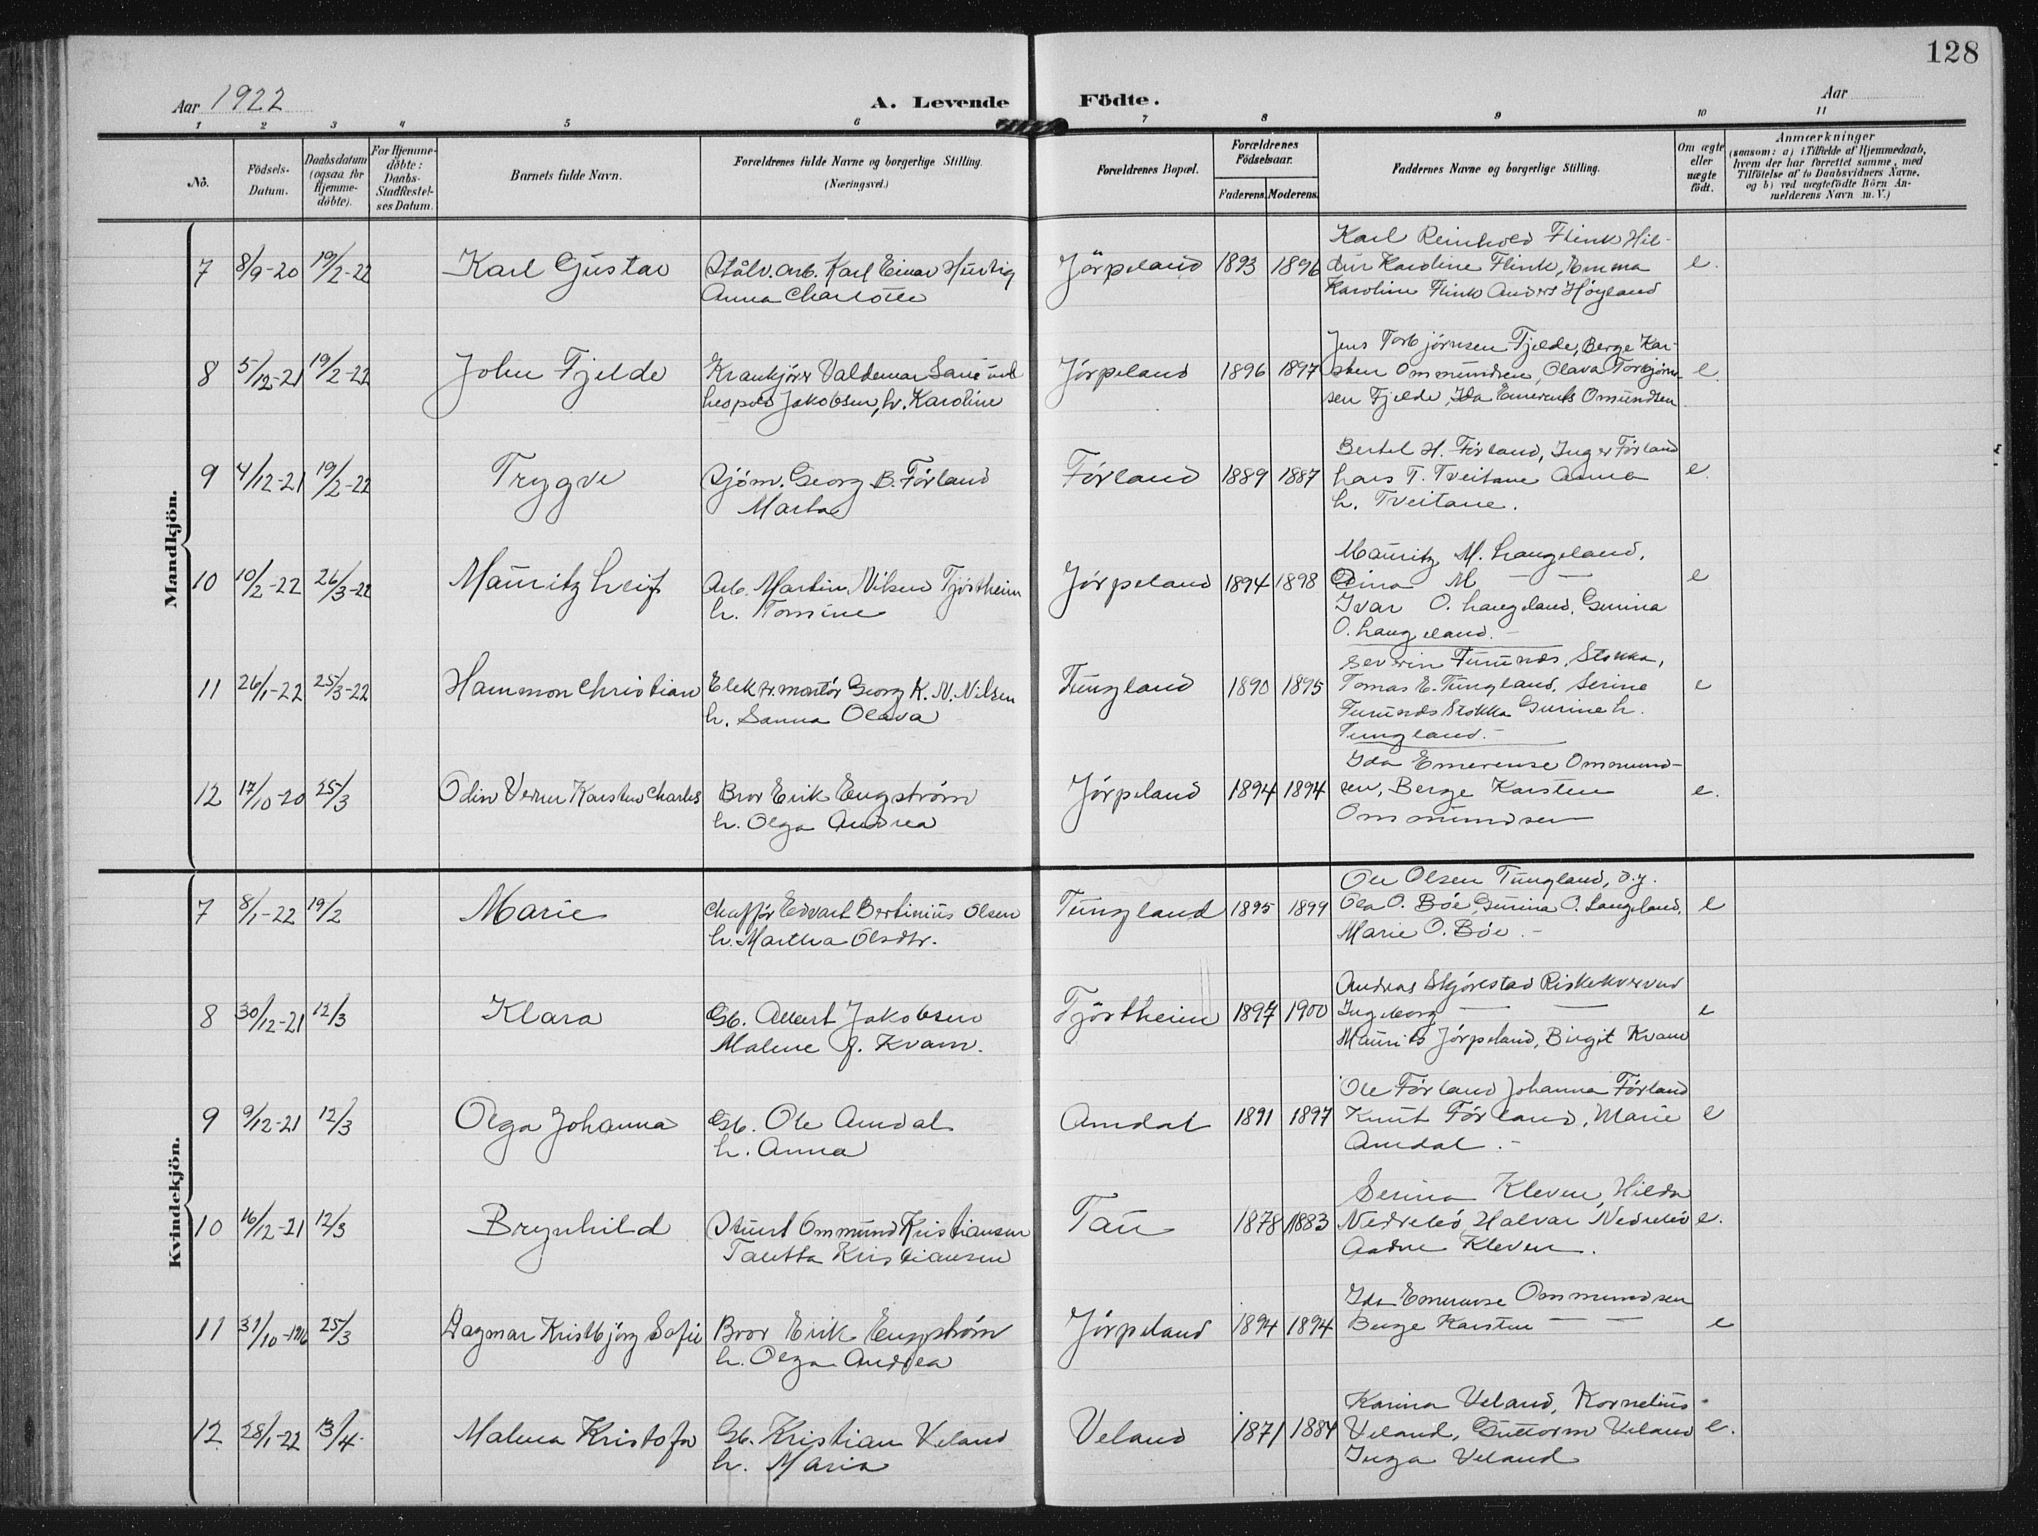 128
Aar 1922
A. Levende Födte.
Aar
1 2 3 4 5 6 7 8 9 10 11
No.
Födsels-Datum.
Daabsdatum (ogsaa for Hjemme-döbte).
For Hjemme-döbte: Daabs-Stadfæstel-ses Datum.
Barnets fulde Navn.
Forældrenes fulde Navne og borgerlige Stilling. (Næringsvei.)
Forældrenes Bopæl.
Forældrenes Födselsaar.
Faderens. Moderens.
Faddernes Navne og borgerlige Stilling.
Om ægte eller uægte födt.
Anmærkninger
(saasom: a) i Tilfælde af Hjemmedaab, hvem der har forrettet samme, med Tilföielse af to Daabsvidners Navne, og b) ved uægtefödte Börn An-melderens Navn m. V.)
Mandkjön.
Karl Reinhold Flink Hil-
7 8/9-20 19/2-22 Karl Gustav Stålv. arb. Karl Einar Hurtig Jörpeland 1893 1896 dur Karoline Flink, Emma e.
Anna Charlotte Karoline Flink Anders Høyland
Jens Torbjörnsen Fjelde, Berge Kar-
8 5/12-21 19/2-22 John Fjelde Krankjörer Valdemar Jörpeland 1896 1897 sten Ommundsen, Olava Torbjörn- e.
Leopold Jakobsen, h. Karoline sen Fjelde, Ida Emerents Omundsen
Bertel H. Förland, Inger Förland
9 4/12-21 19/2-22 Trygve Sjöm. Georg B. Förland Förland 1889 1887 Lars T. Tveitane Anna e.
Marta L. Tveitane.
Mauritz M. Langeland,
10 10/2-22 26/3-22 Mauritz Leif Arb. Martin Nilsen Tjöstheim Jörpeland 1894 1898 M — — e
h. Tomine Ivar O. Langeland, Gunina
O. Langeland. -
Severin Furunds. Stokka,
11 26/1-22 25/3-22 Hammon Christian Elektr. montör Georg K. N. Nilsen Tungland 1890 1895 Tomas E. Tungland, Serine e
h. Sanna Olava Furunds Stokka Gurine L.
Tungland. -
Ida Emerense Ommund-
12 17/10-20 25/3 Odin Verner Karsten Charles Bror Erik Engström Jörpeland 1894 1894 sen, Berge Karsten e.
h. Olga Andrea Ommundsen
Kvindekjön.
Ole Olsen Tungland, d.y.
7 8/1-22 19/2 Marie Chafför Edvart Bertinius Olsen Tungland 1895 1899 Ola O. Böe, Gunina O. Langeland, e
h. Martha Olsdtr. Marie O. Böe. -
Andreas Skjörestad Riskekverved
8 30/12-21 12/3 Klara Gb. Albert Jakobsen Tjöstheim 1897 1900 Ingeborg — — e
Malene f. Kvam. Maurits Jörpeland, Birgit Kvam
Ole Förland Johanna Förland
9 9/12-21 12/3 Olga Johanna Gb. Ole Amdal Amdal 1891 1897 Knut Förland, Marie e
h. Anna Amdal. -
Serina Kleven, Hilda
10 16/12-21 12/3 Brynhild Ommund Kristiansen Tau 1878 1883 Nedrebö, Halvar Nedrebö e.
Taletta Kristiansen Aadne Kleven.
Ida Emerense Ommundsen
11 31/10-1916 25/3 Dagmar Kristbjörg Sofie Bror Erik Engström Jörpeland 1894 1894 Berge Karsten — — e
h. Olga Andrea
Karina Veland, Kornelius
12 28/1-22 13/4 Malena Kristofa Gb. Kristian Veland Veland 1871 1884 Veland, Guttorm Veland e.
h. Maria Inga Veland